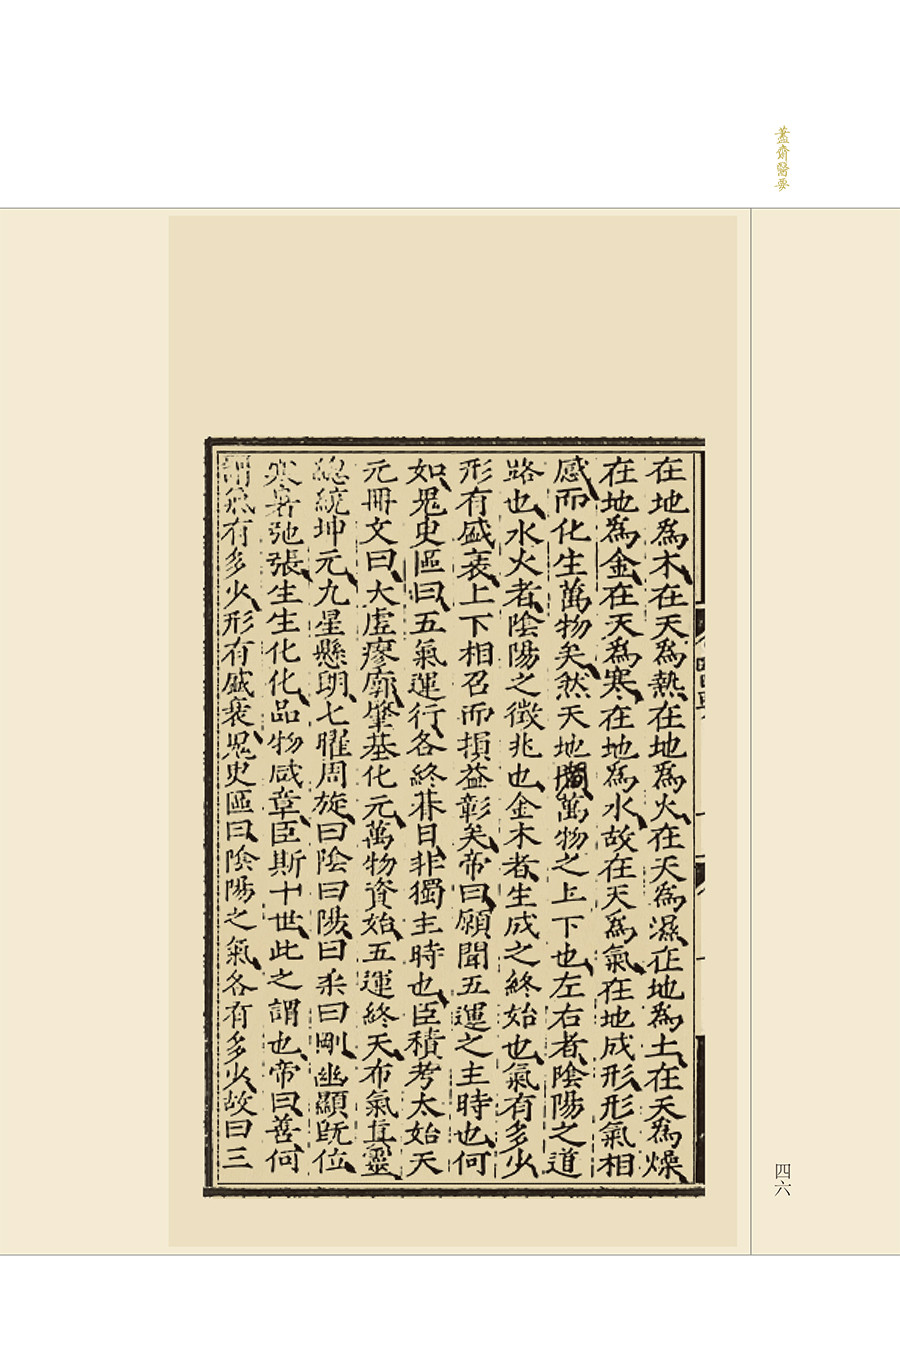 蓋齋醫要
在地為木在天為熱在地為火在天為濕在地為土在天為燥
在地為金在天為寒在地為水故在天為氣在地成形形氣相
感而化生萬物矣然天地闊萬物之上下也左右者陰陽之道
路也水火者陰陽之徵兆也金木者生成之終始也氣有多少
形有盛衰上下相召而損益彰矣帝曰願聞五運之主時也何
如鬼臾區曰五氣運行各終朞日非獨主時也臣積考太始天
元冊文曰大虛廖廓肇基化元萬物資始五運終天布氣真靈
總統坤元九星懸朗七曜周旋曰陰曰陽曰柔曰剛幽顯既位
寒暑弛張生生化化品物咸章臣斯十世此之謂也帝曰善何
謂氣有多少形有盛衰鬼臾區曰陰陽之氣各有多少故曰三
四六